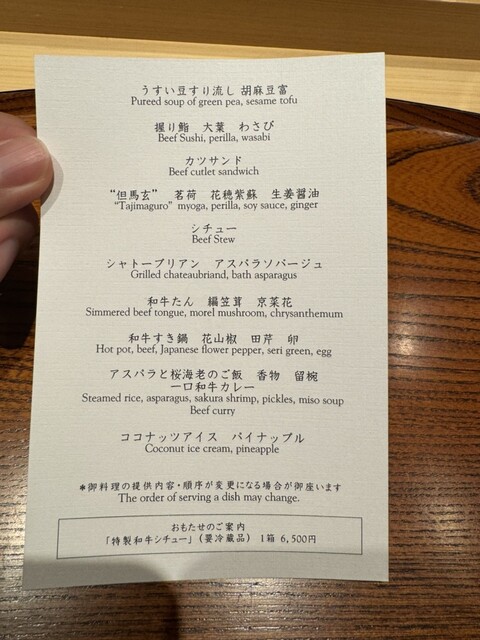 うすい豆すり流し 胡麻豆富
Pureed soup of green pea, sesame tofu
握り鮨 大葉 わさび
Beef Sushi, perilla, wasabi
カツサンド
Beef cutlet sandwich
“但馬玄” 茗荷 花穂紫蘇 生姜醤油
“Tajimaguro” myoga, perilla, soy sauce, ginger
シチュー
Beef Stew
シャトーブリアン アスパラソバージュ
Grilled chateaubriand, bath asparagus
和牛たん 編笠茸 京菜花
Simmered beef tongue, morel mushroom, chrysanthemum
和牛すき鍋 花山椒 田芹 卵
Hot pot, beef, Japanese flower pepper, seri green, egg
アスパラと桜海老のご飯 香物 留椀
一口和牛カレー
Steamed rice, asparagus, sakura shrimp, pickles, miso soup
Beef curry
ココナッツアイス パイナップル
Coconut ice cream, pineapple
*御料理の提供内容・順序が変更になる場合が御座います
The order of serving a dish may change.
おもたせのご案内
「特製和牛シチュー」(要冷蔵品) 1箱 6,500円